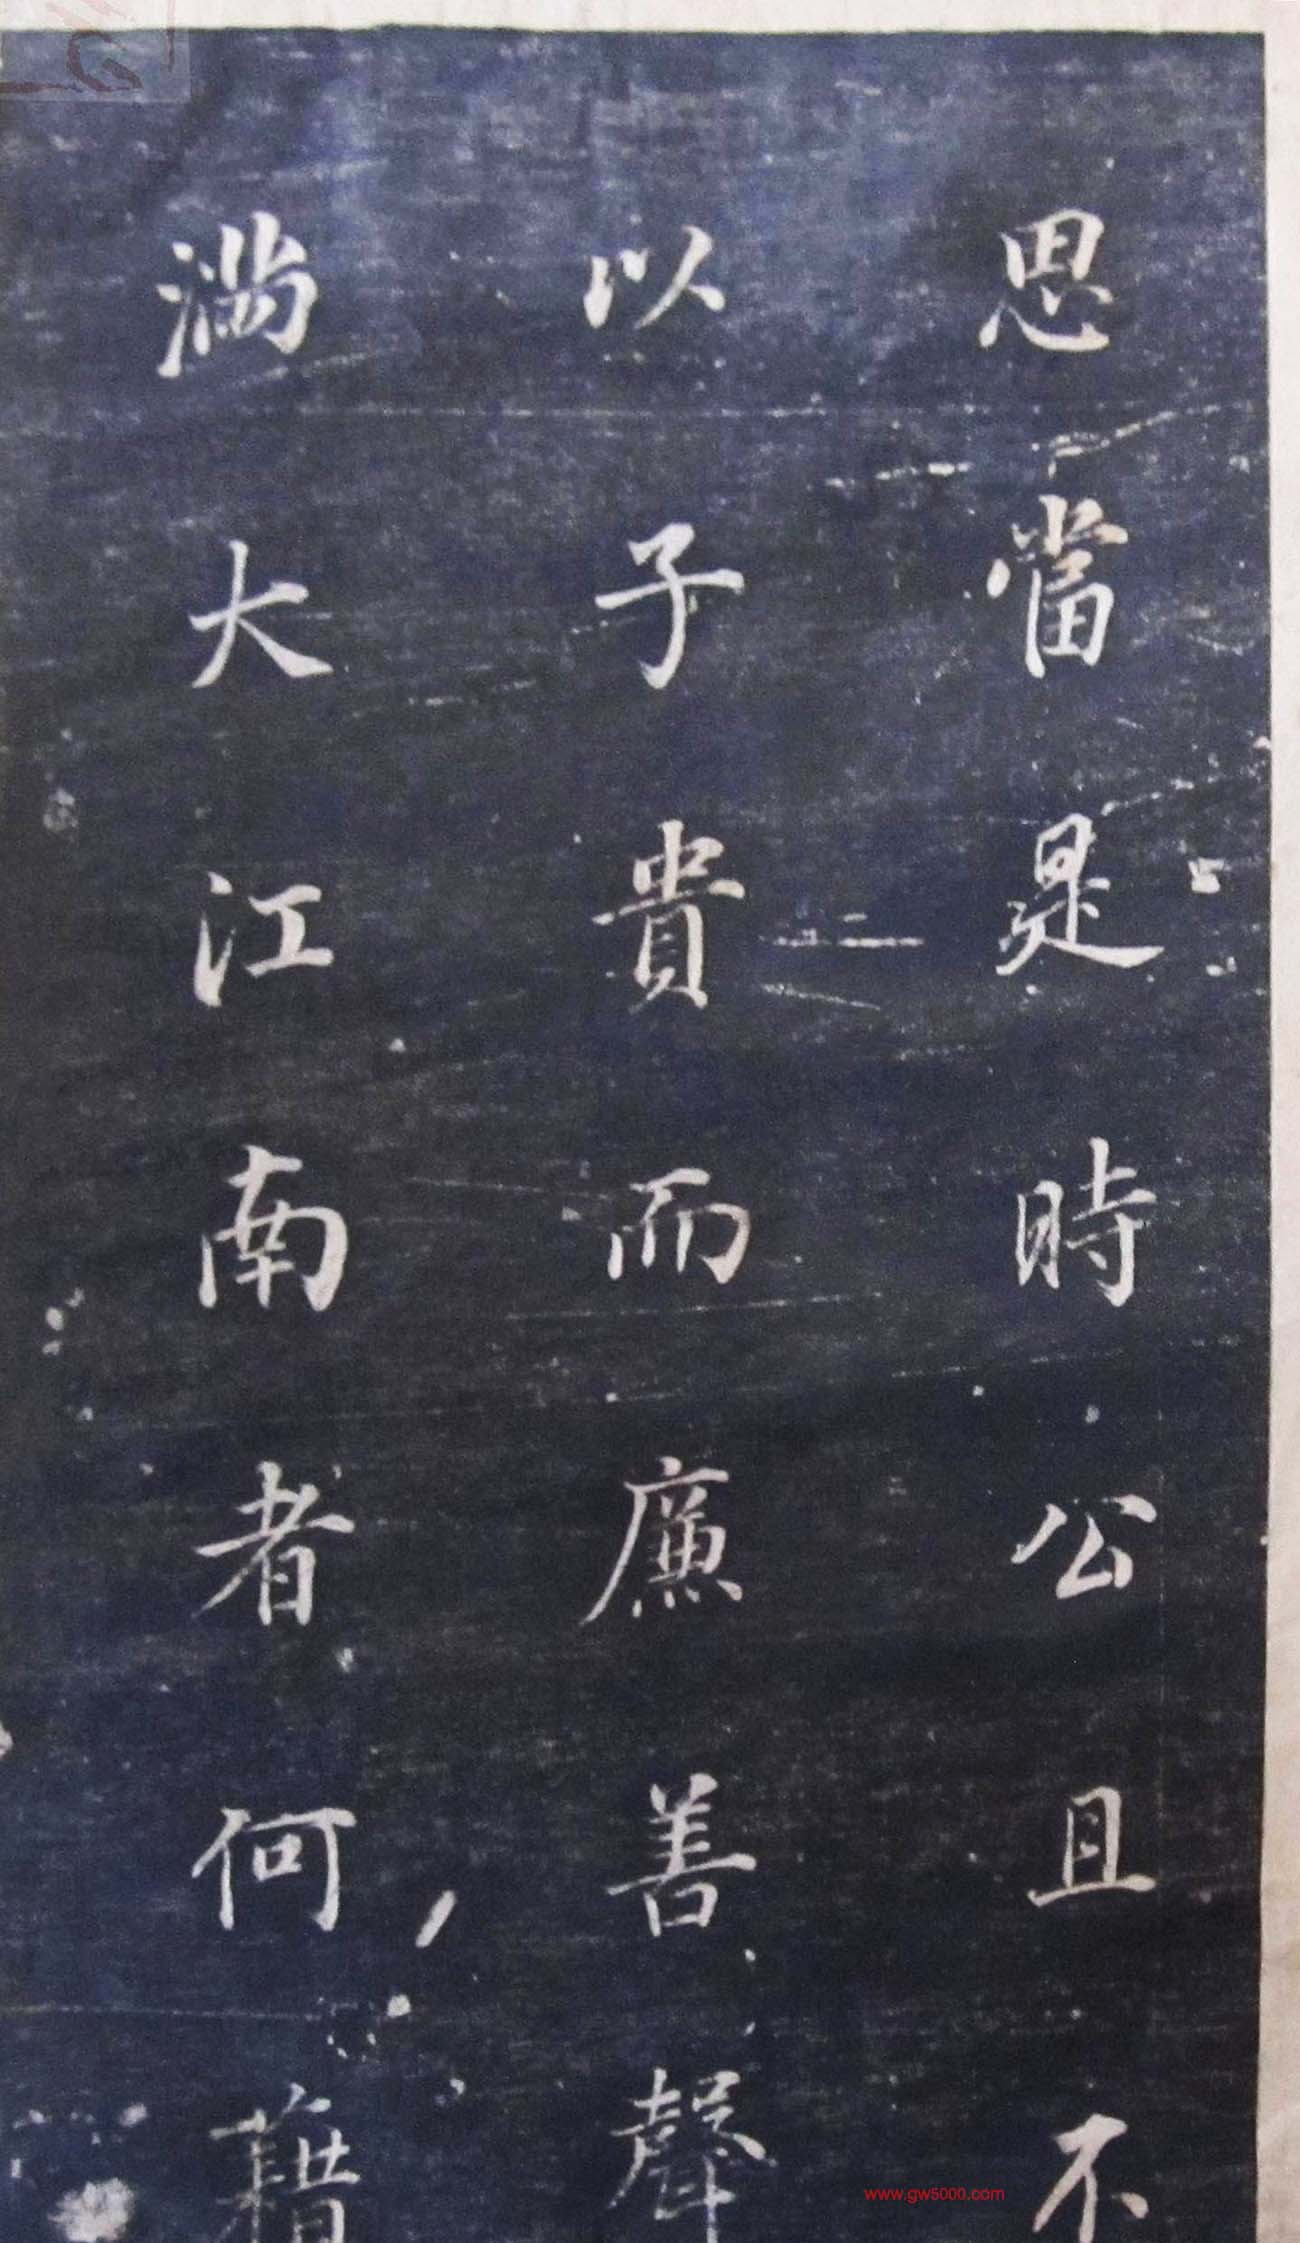 思當是時公且不
以子貴而廉善聲
滿大江南者何藉
www.gw5000.com